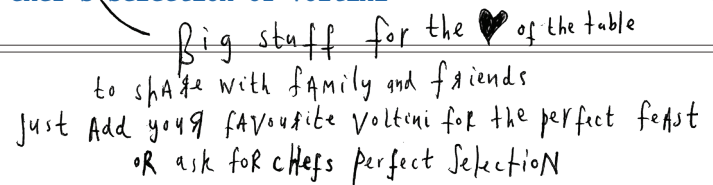 Big stuff for the ♥ of the table
to shARe with fAMily and fRiends
Just Add youR fAVouRite Voltini foR the perfect feAst
oR ask foR chefs perfect SelectioN